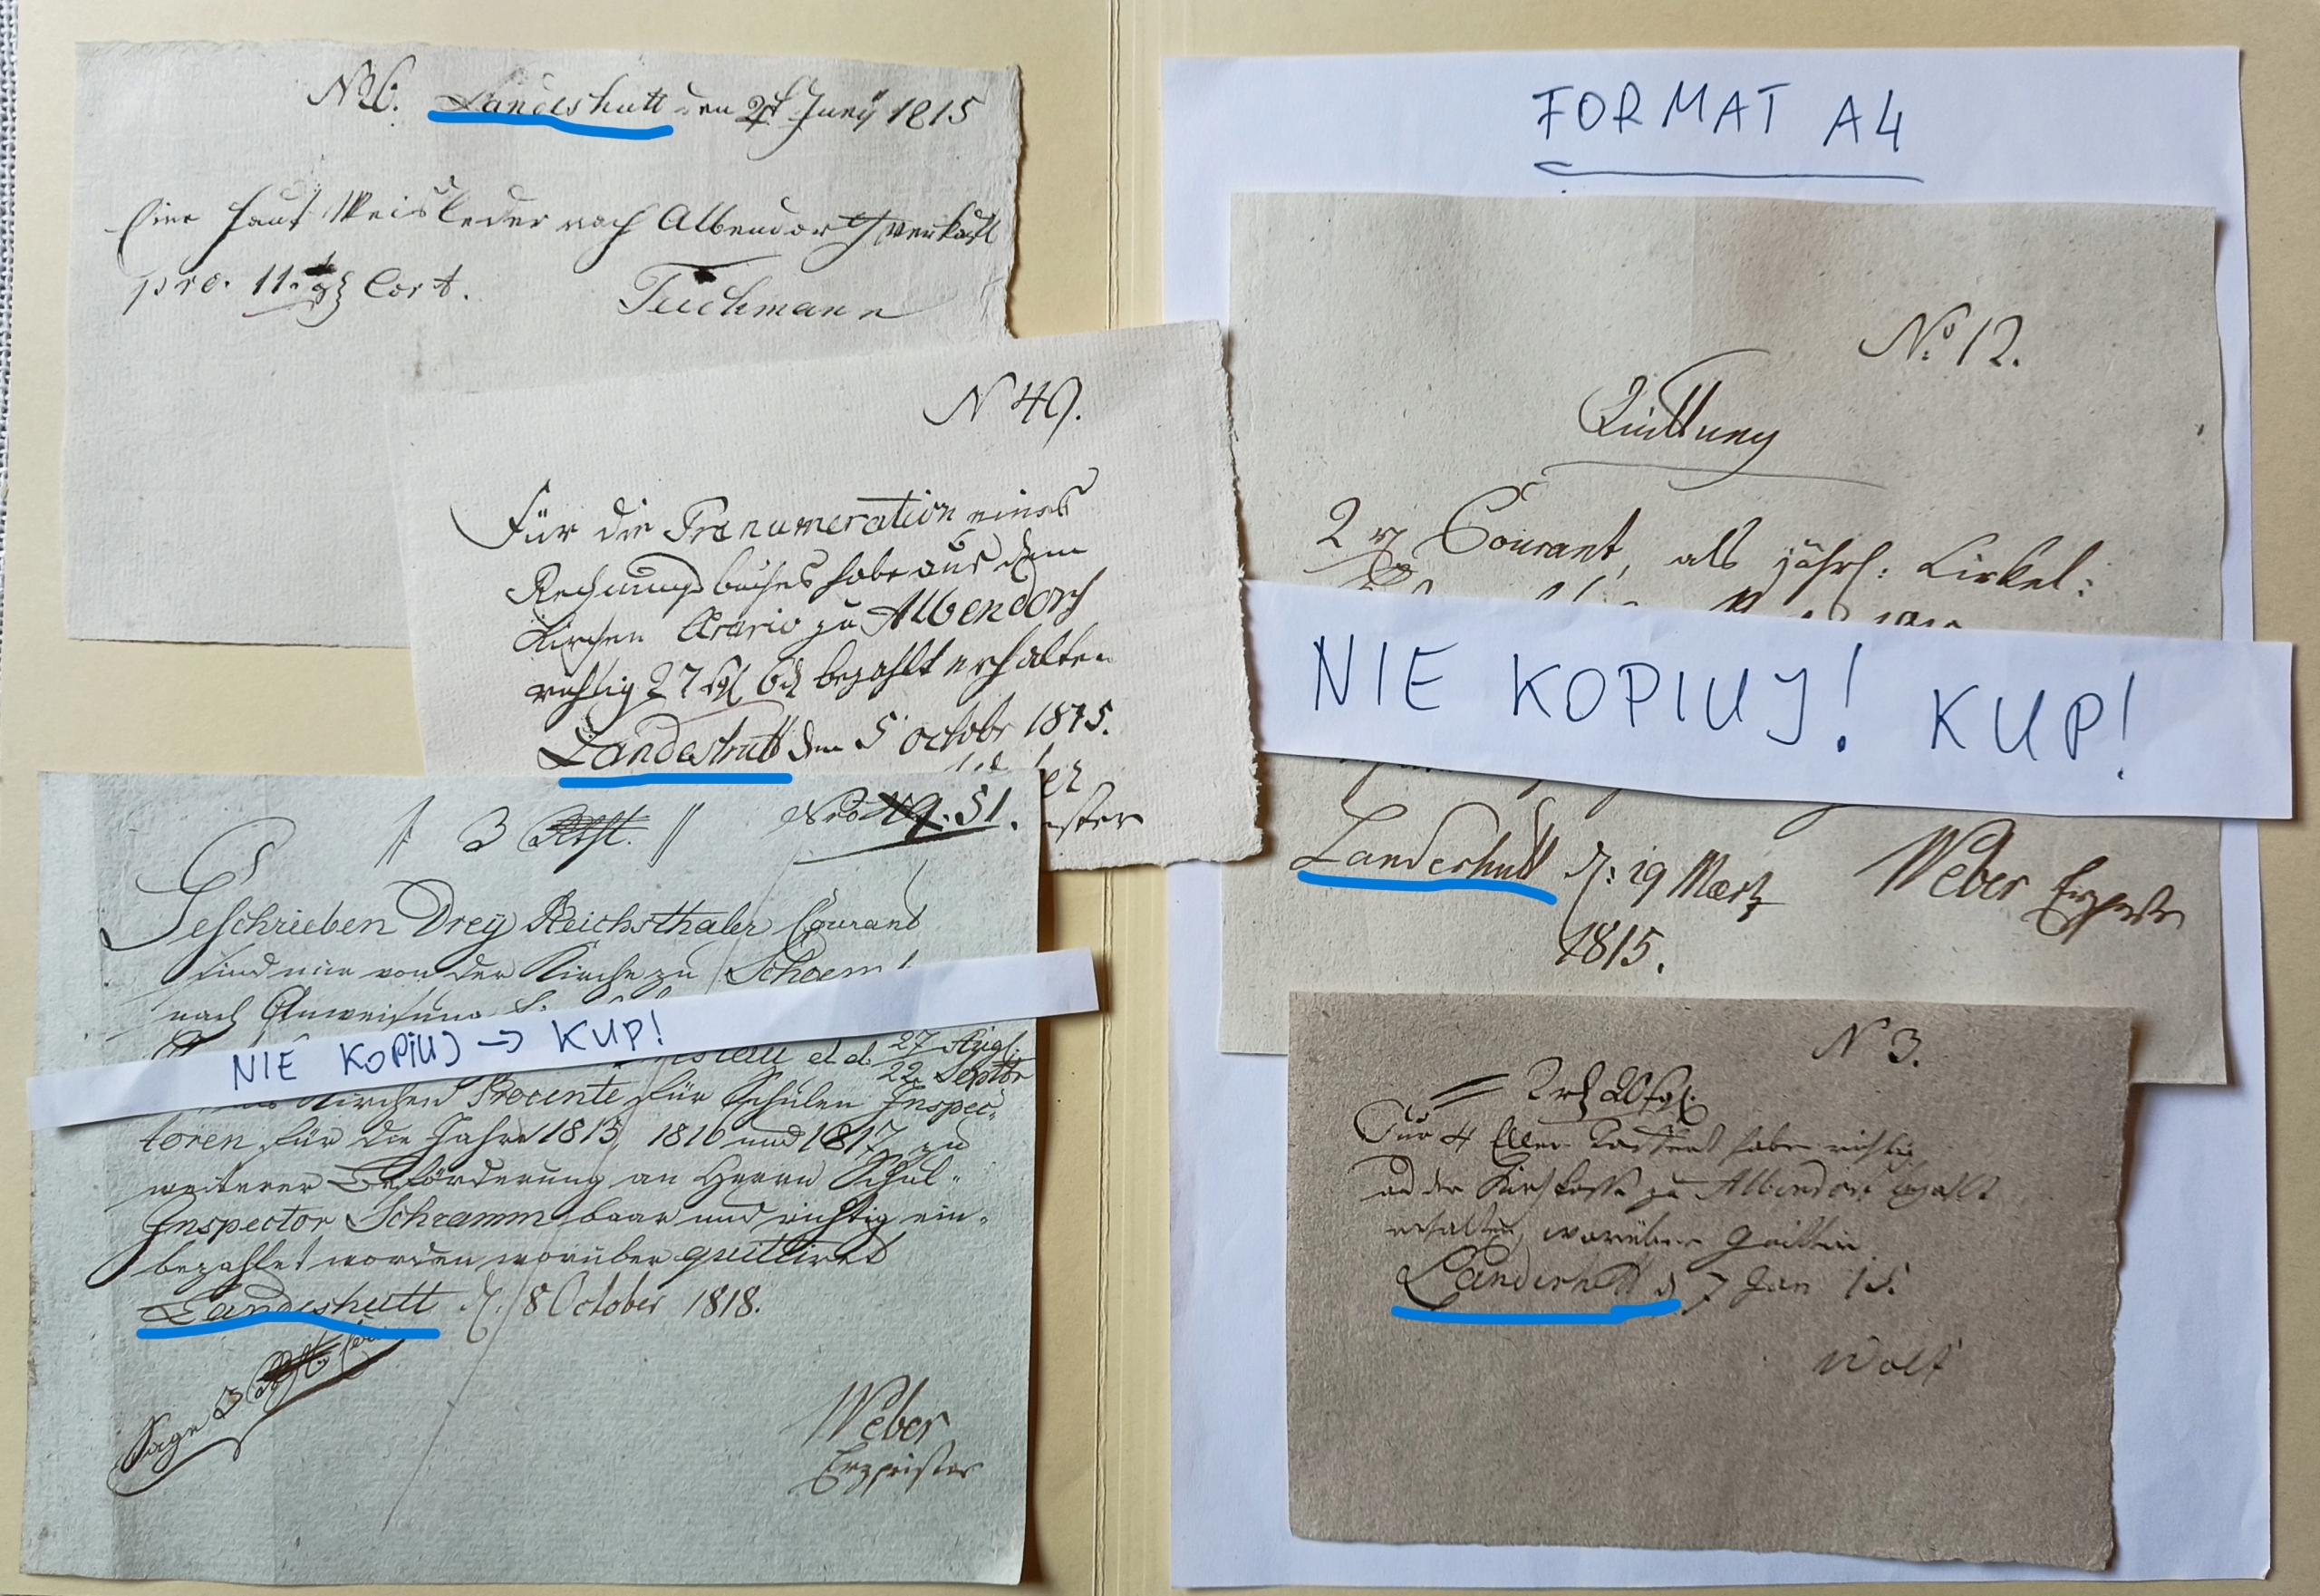 No 6. Landeshutt den 24 Juny 1815
Eine Haut Weisleder nach Albendorf verkauft
pro. 11. Cort.
Teichmann
N 49.
Für die Pränumeration eines
Rechnungsbuches habe aus dem
Kirchen Ærario zu Albendorf
richtig 27 sgl 6 d bezahlt erhalten
Landeshutt den 5 octobr 1815.
3 Rtlr.
51.
Geschrieben Drey Reichsthaler Courant
sind mir von der Kirche zu Schoem
nach Anweisung
et d. 27 Augl.
22 Septbr
Kirchen Procente für Schulen Inspec-
toren für die Jahre 1815, 1816 und 1817 zu
weiterer Beförderung an Herrn Schul-
Inspector Schramm baar und richtig ein-
bezahlet worden worüber quittiret
Landeshutt d. 8 October 1818.
Sage 3
Weber
Erzpriester
NIE KOPIUJ → KUP!
FORMAT A4
No 12.
Quittung
2 Courant, als jährl: Cirkel:
NIE KOPIUJ! KUP!
Landeshutt d: 19 Maertz
1815.
Weber Erzpriester
N 3.
2 rtl 20 sgl.
Für 4 Ellen habe richtig
aus der Kirchkasse zu Albendorf bezahlt
erhalten, worüber quittire
Landeshutt d 7 Jan 15.
Wolf